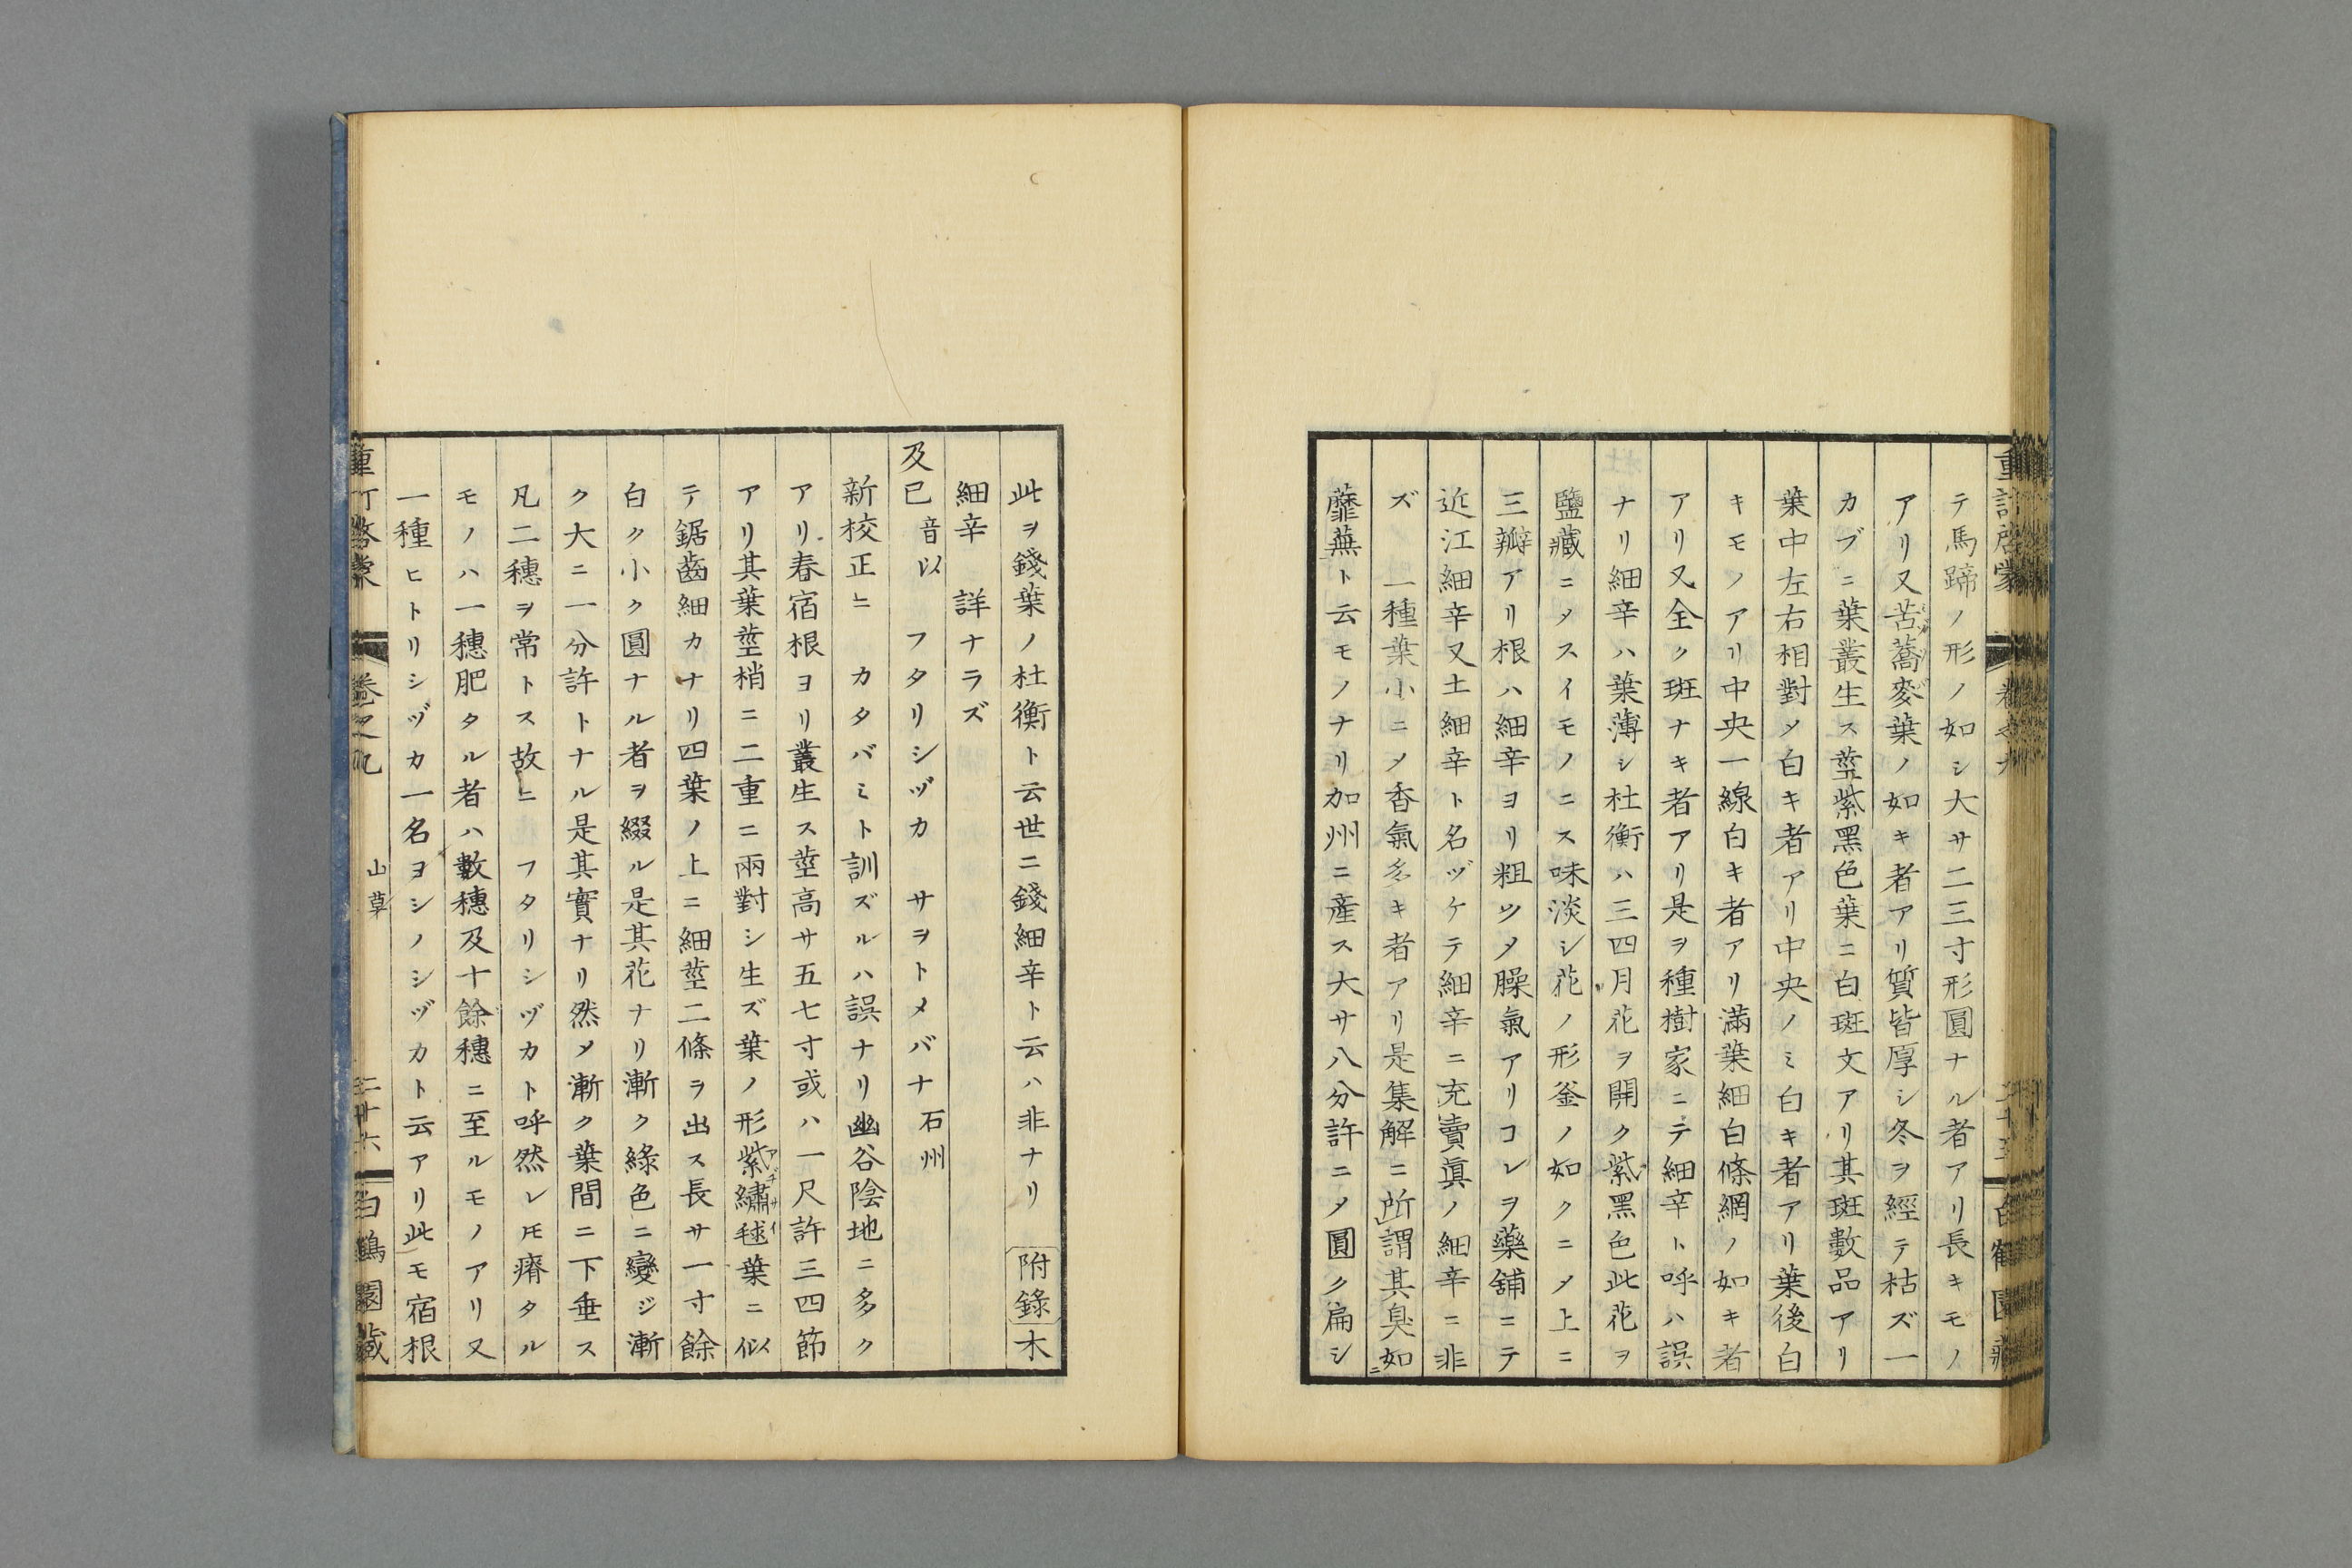 重訂啓蒙 卷之九 二十五 白鶴園藏
テ馬蹄ノ形ノ如シ大サ二三寸形圓ナル者アリ長キモノ
アリ又苦蕎麥葉ノ如キ者アリ質皆厚シ冬ヲ經テ枯ズ一
カブニ葉叢生ス莖紫黑色葉ニ白斑文アリ其斑數品アリ
葉中左右相對〆白キ者アリ中央ノミ白キ者アリ葉後白
キモノアリ中央一線白キ者アリ滿葉細白條網ノ如キ者
アリ又全ク斑ナキ者アリ是ヲ種樹家ニテ細辛ト呼ハ誤
ナリ細辛ハ葉薄シ杜衡ハ三四月花ヲ開ク紫黑色此花ヲ
鹽藏ニ〆スイモノニス味淡シ花ノ形釜ノ如クニ〆上ニ
三瓣アリ根ハ細辛ヨリ粗ツ〆臊氣アリコレヲ藥舗ニテ
近江細辛又土細辛ト名ヅケテ細辛ニ充賣眞ノ細辛ニ非
ズ 一種葉小ニ〆香氣多キ者アリ是集解ニ所謂其臭如ニ
蘼蕪ト云モノナリ加州ニ産ス大サ八分許ニ〆圓ク扁シ
此ヲ錢葉ノ杜衡ト云世ニ錢細辛ト云ハ非ナリ 附錄 木
細辛 詳ナラズ
及已 音以 フタリシヅカ サヲトメバナ 石州
新校正ニ カタバミト訓ズルハ誤ナリ幽谷陰地ニ多ク
アリ春宿根ヨリ叢生ス莖高サ五七寸或ハ一尺許三四節
アリ其葉莖梢ニ二重ニ兩對シ生ズ葉ノ形紫繡毬アヂサイ葉ニ似
テ鋸齒細カナリ四葉ノ上ニ細莖二條ヲ出ス長サ一寸餘
白ク小ク圓ナル者ヲ綴ル是其花ナリ漸ク綠色ニ變ジ漸
ク大ニ一分許トナル是其實ナリ然〆漸ク葉間ニ下垂ス
凡二穗ヲ常トス故ニ フタリシヅカト呼然レ𪜈瘠タル
モノハ一穗肥タル者ハ數穗及十餘穗ニ至ルモノアリ又
一種ヒトリシヅカ一名ヨシノシヅカト云アリ此モ宿根
重訂啓蒙 卷之九 山草 二十六 白鶴園藏